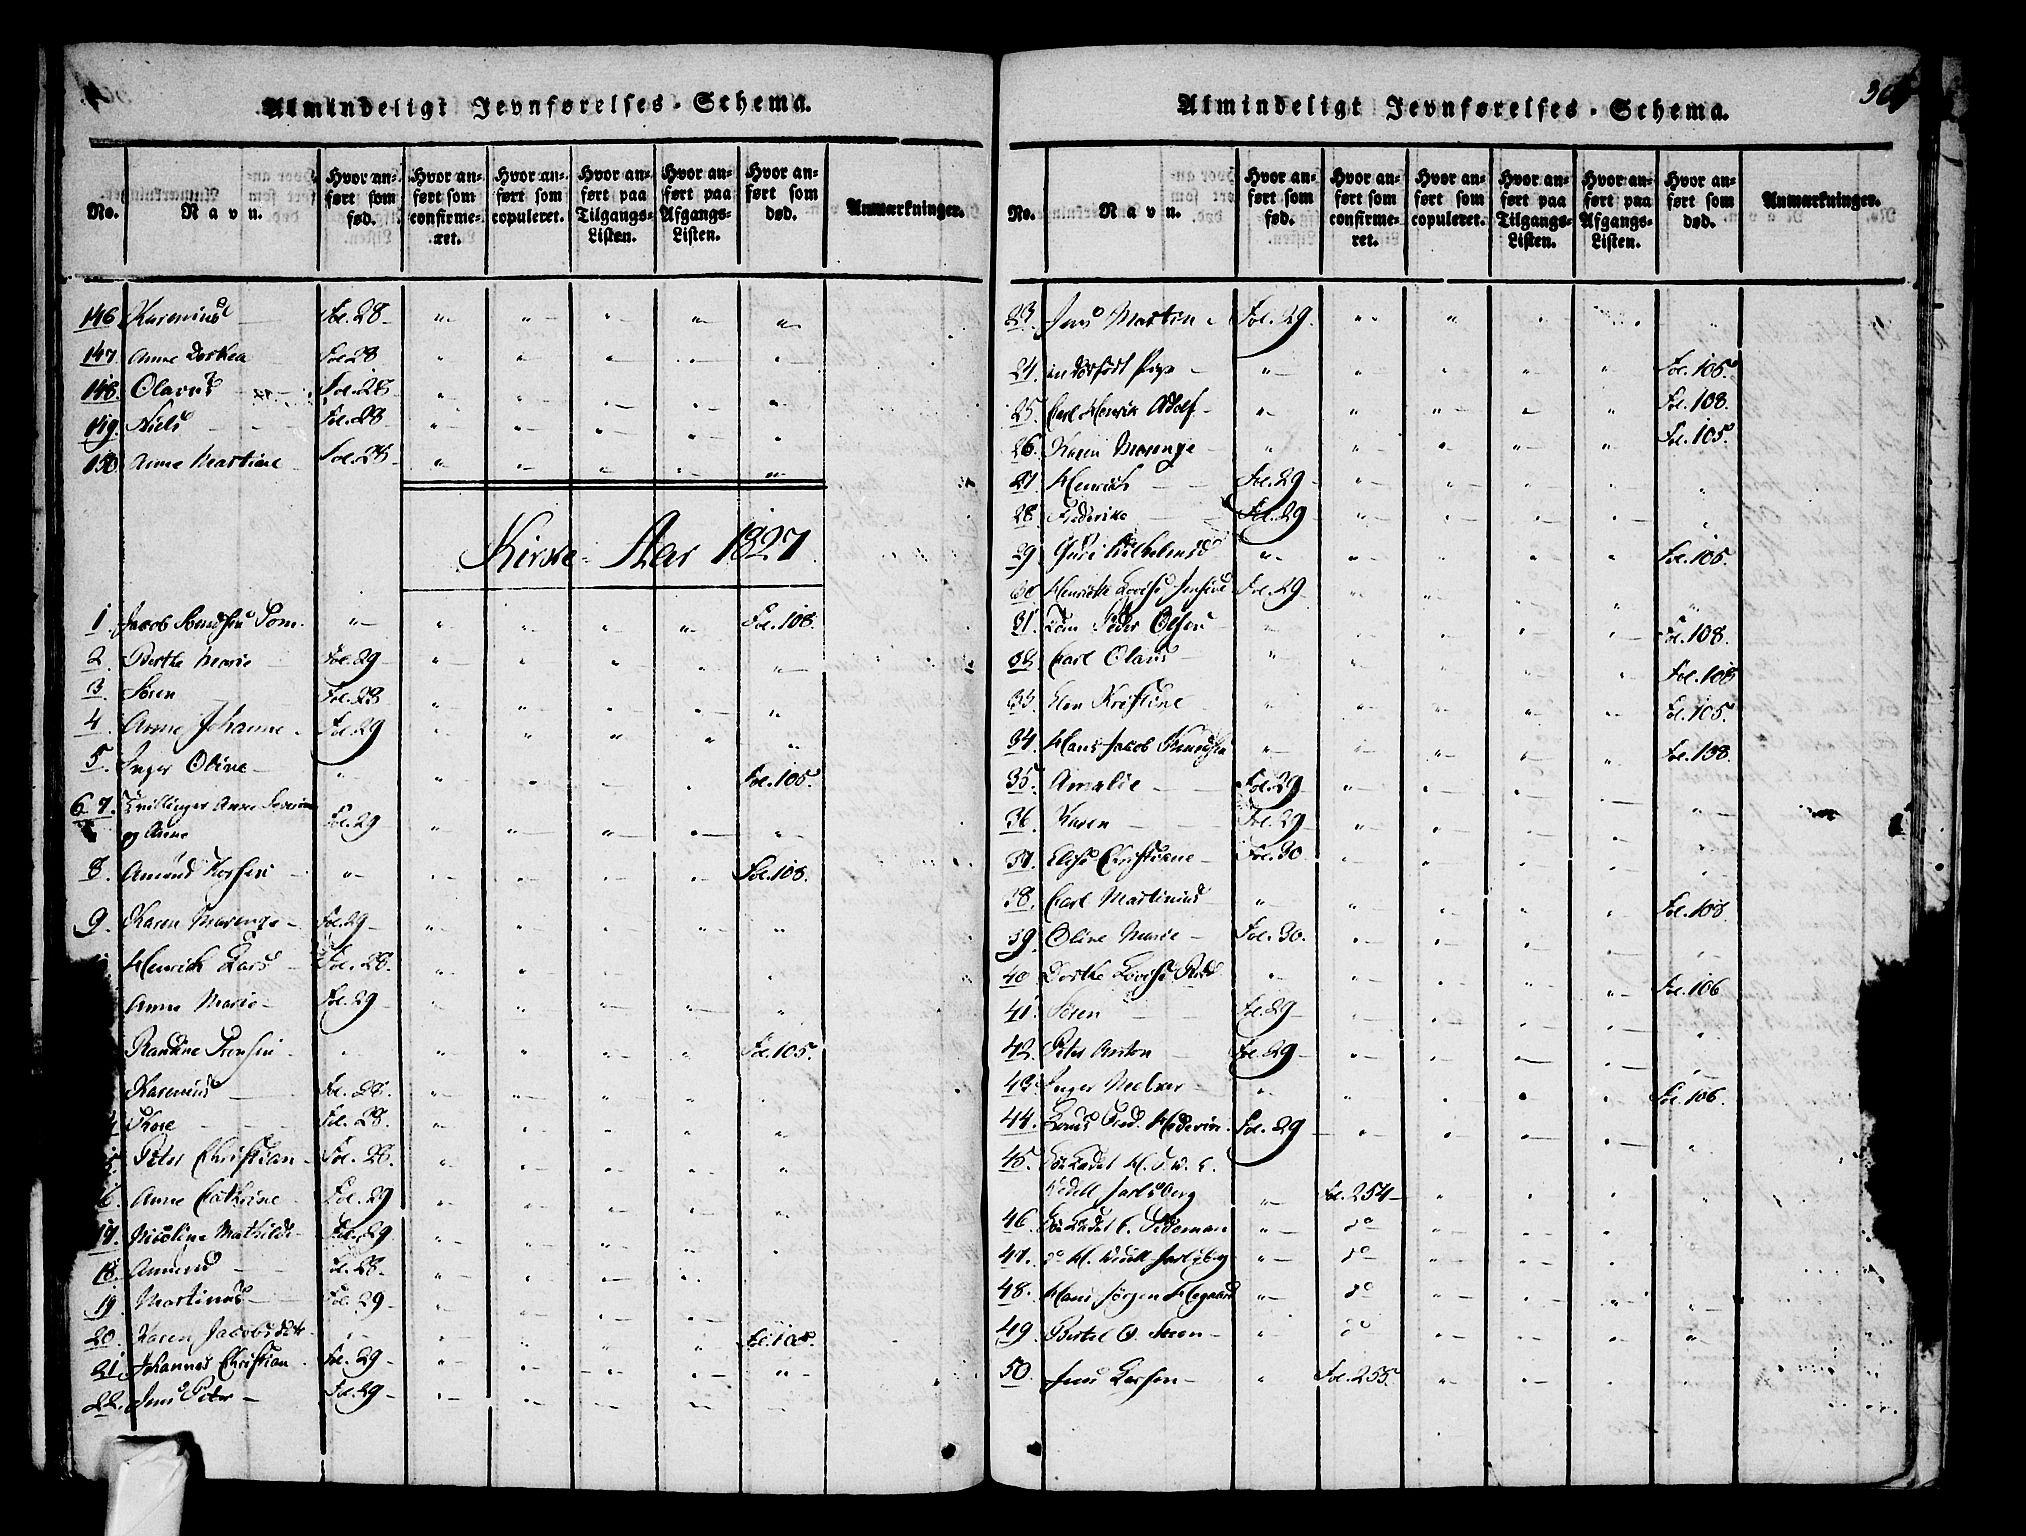 Almindeligt Jevnførelses-Schema.
No. Navn. Hvor anført som fød. Hvor anført som confirmeret. Hvor anført som copuleret. Hvor anført paa Tilgangs-Listen. Hvor anført paa Afgangs-Listen. Hvor anført som død. Anmærkninger.
146 Karenius Fol. 28
147 Anne Dorthea Fol. 28
148. Olavus Fol. 28
149. Niels Fol. 28
150 Anne Martine Fol. 28
Kirke-Aar 1827
1. Jacob Fol. 108.
2. Berthe Marie Fol. 29
3. Søren Fol. 28
4. Anne Johanne Fol. 29
5. Inger Oline Fol. 105
6. 7. Tvillinger Anne Severine
og Anne Fol. 29
8. Amund Fol. 108.
9. Karen Marenge Fol. 29
Henrich Lars Fol. 28.
Anne Marie Fol. 29
Randine Fol. 105.
Karenius Fol. 28.
Thore Fol. 28.
Peter Christian Fol. 28.
6. Anne Cathrine Fol. 29
17. Nicoline Mathilde Fol. 29
18. Amund Fol. 28.
19 Martinus Fol. 29
20. Karen Jacobsdatter Fol. 105
21. Johannes Christian Fol. 29
22. Jens Peter Fol. 29
Almindeligt Jevnførelses-Schema. 364
No. Navn. Hvor anført som fød. Hvor anført som confirmeret. Hvor anført som copuleret. Hvor anført paa Tilgangs-Listen. Hvor anført paa Afgangs-Listen. Hvor anført som død. Anmærkninger.
23. Jens Martin Fol. 29.
24. en dødfødt Pige Fol. 105
25. Carl Henrik Adolf Fol. 108.
26. Karen Marenge Fol. 105
27 Henrich Fol. 29
28. Frederike Fol. 29
29 Fol. 105.
30 Henrikke Lovise Fol. 29
31. Peder Olsen Fol. 108.
32. Carl Olaus Fol. 108
33 Elen Kristine Fol. 105.
34. Hans Jacob Knudsen Fol. 108.
35. Amalie Fol. 29
36. Karen Fol. 29
37. Elise Christiane Fol. 30
38. Carl Martinius Fol. 108
39. Oline Marie Fol. 30.
40 Dorthe Lovise Fol. 106
41. Søren Fol. 29
42. Peter Anton Fol. 29
43. Inger Fol. 106.
44. Fred. Fol. 29
45. Søe Cadet H. F. W. C.
Wedell Jarlsberg Fol. 254
46. Søe Cadet C. Tideman do
47. do H. Wedell Jarlsberg do
48. Hans Jørgen do
49. Bertel O. Steen do
50. Jens Larsen Fol. 255.